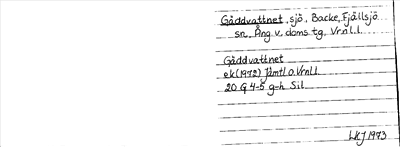 Gäddvattnet, sjö, Backe, Fjällsjö
sn, Ång. v. doms. tg. Vrnl.l.
Gäddvattnet
ek (1972) Jämtl. o. Vrnl.l.
20 G 4-5 g-h Sil.
LKJ 1973